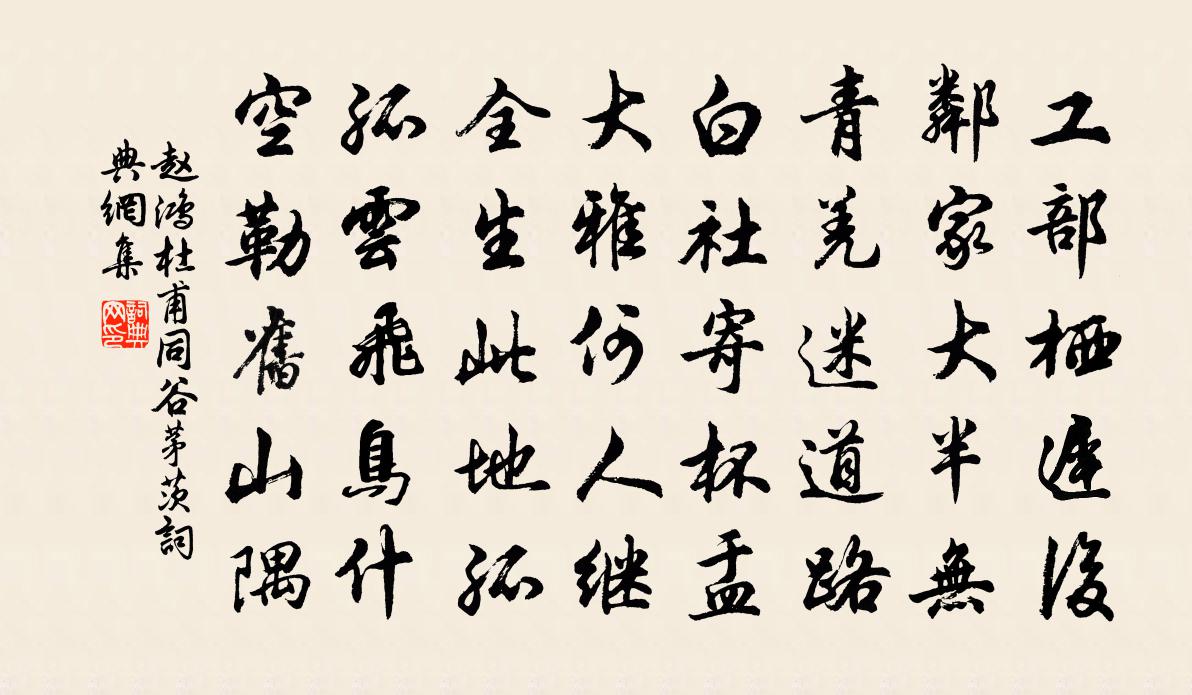 工部栖遲後
鄰家大半無
青羌迷道路
白社寄杯盂
大雅何人继
全生此地孤
孤雲飛鳥什
空勒舊山隅
赵鴻杜甫同谷茅茨詞
典網集
詞典
网印